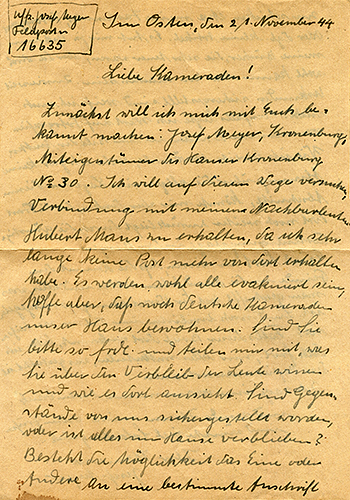 Uffz. Josef Meyer
Feldpostnr.
16635
Im Osten, den 21. November 44
Liebe Kameraden!
Zunächst will ich mich mit Euch be-
kannt machen: Josef Meyer, Kronenburg,
Miteigentümer des Hauses Kronenburg
No 30. Ich will auf diesem Wege versuchen
Verbindung mit meinen Nachbarleuten
Hubert Maus zu erhalten, da ich sehr
lange keine Post mehr von dort erhalten
habe. Es werden wohl alle evakuiert sein,
hoffe aber, daß noch deutsche Kameraden
unser Haus bewohnen. Sind Sie
bitte so frdl. und teilen mir mit, was
Sie über den Verbleib der Leute wissen
und wie es dort aussieht. Sind Gegen-
stände von uns sichergestellt worden,
oder ist alles im Hause verblieben?
Besteht die Möglichkeit das Eine oder
Andere an eine bestimmte Anschrift